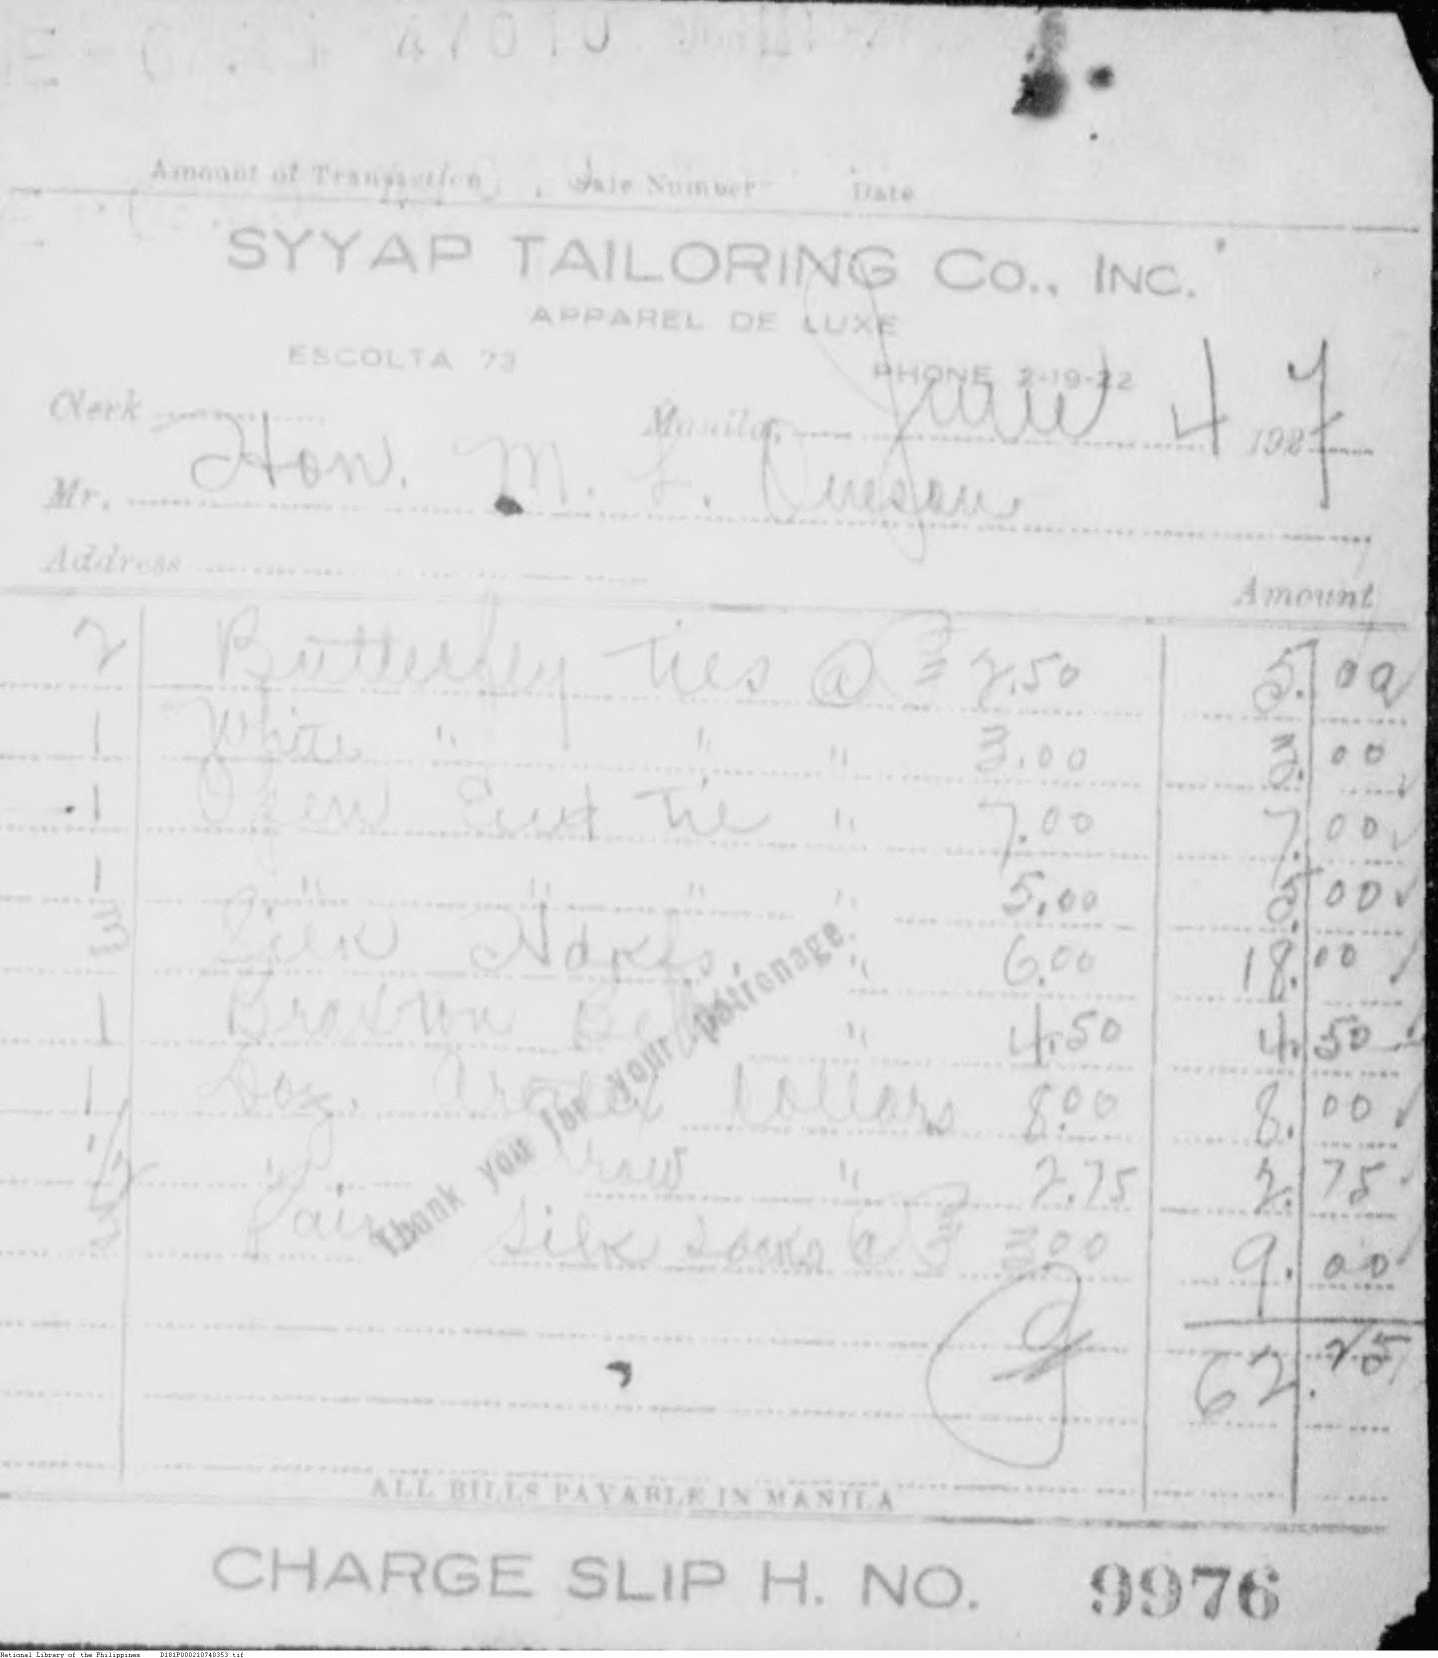 47010
Amount of Transaction Sale Number Date
SYYAP TAILORING Co., INC.
APPAREL DE LUXE
ESCOLTA 73 PHONE 2-19-22
Clerk Manila, June 4 1927
Mr. Hon. M. L. Quezon
Address
Amount
2 Butterfly ties @ ₱ 2.50 5.00
1 White " " " 3.00 3.00
1 Open End tie " 7.00 7.00
1 " " " " 5.00 5.00
3 Silk Hdkfs. " 6.00 18.00
1 Braxton Belt " 4.50 4.50
1 Doz. Arrow Collars 8.00 8.00
1/2 " Arrow " 2.75 2.75
3 Pair Silk Socks @ ₱ 3.00 9.00
62.25
Thank you for your patronage.
ALL BILLS PAYABLE IN MANILA
CHARGE SLIP H. NO. 9976
National Library of the Philippines D181P000210740353.tif